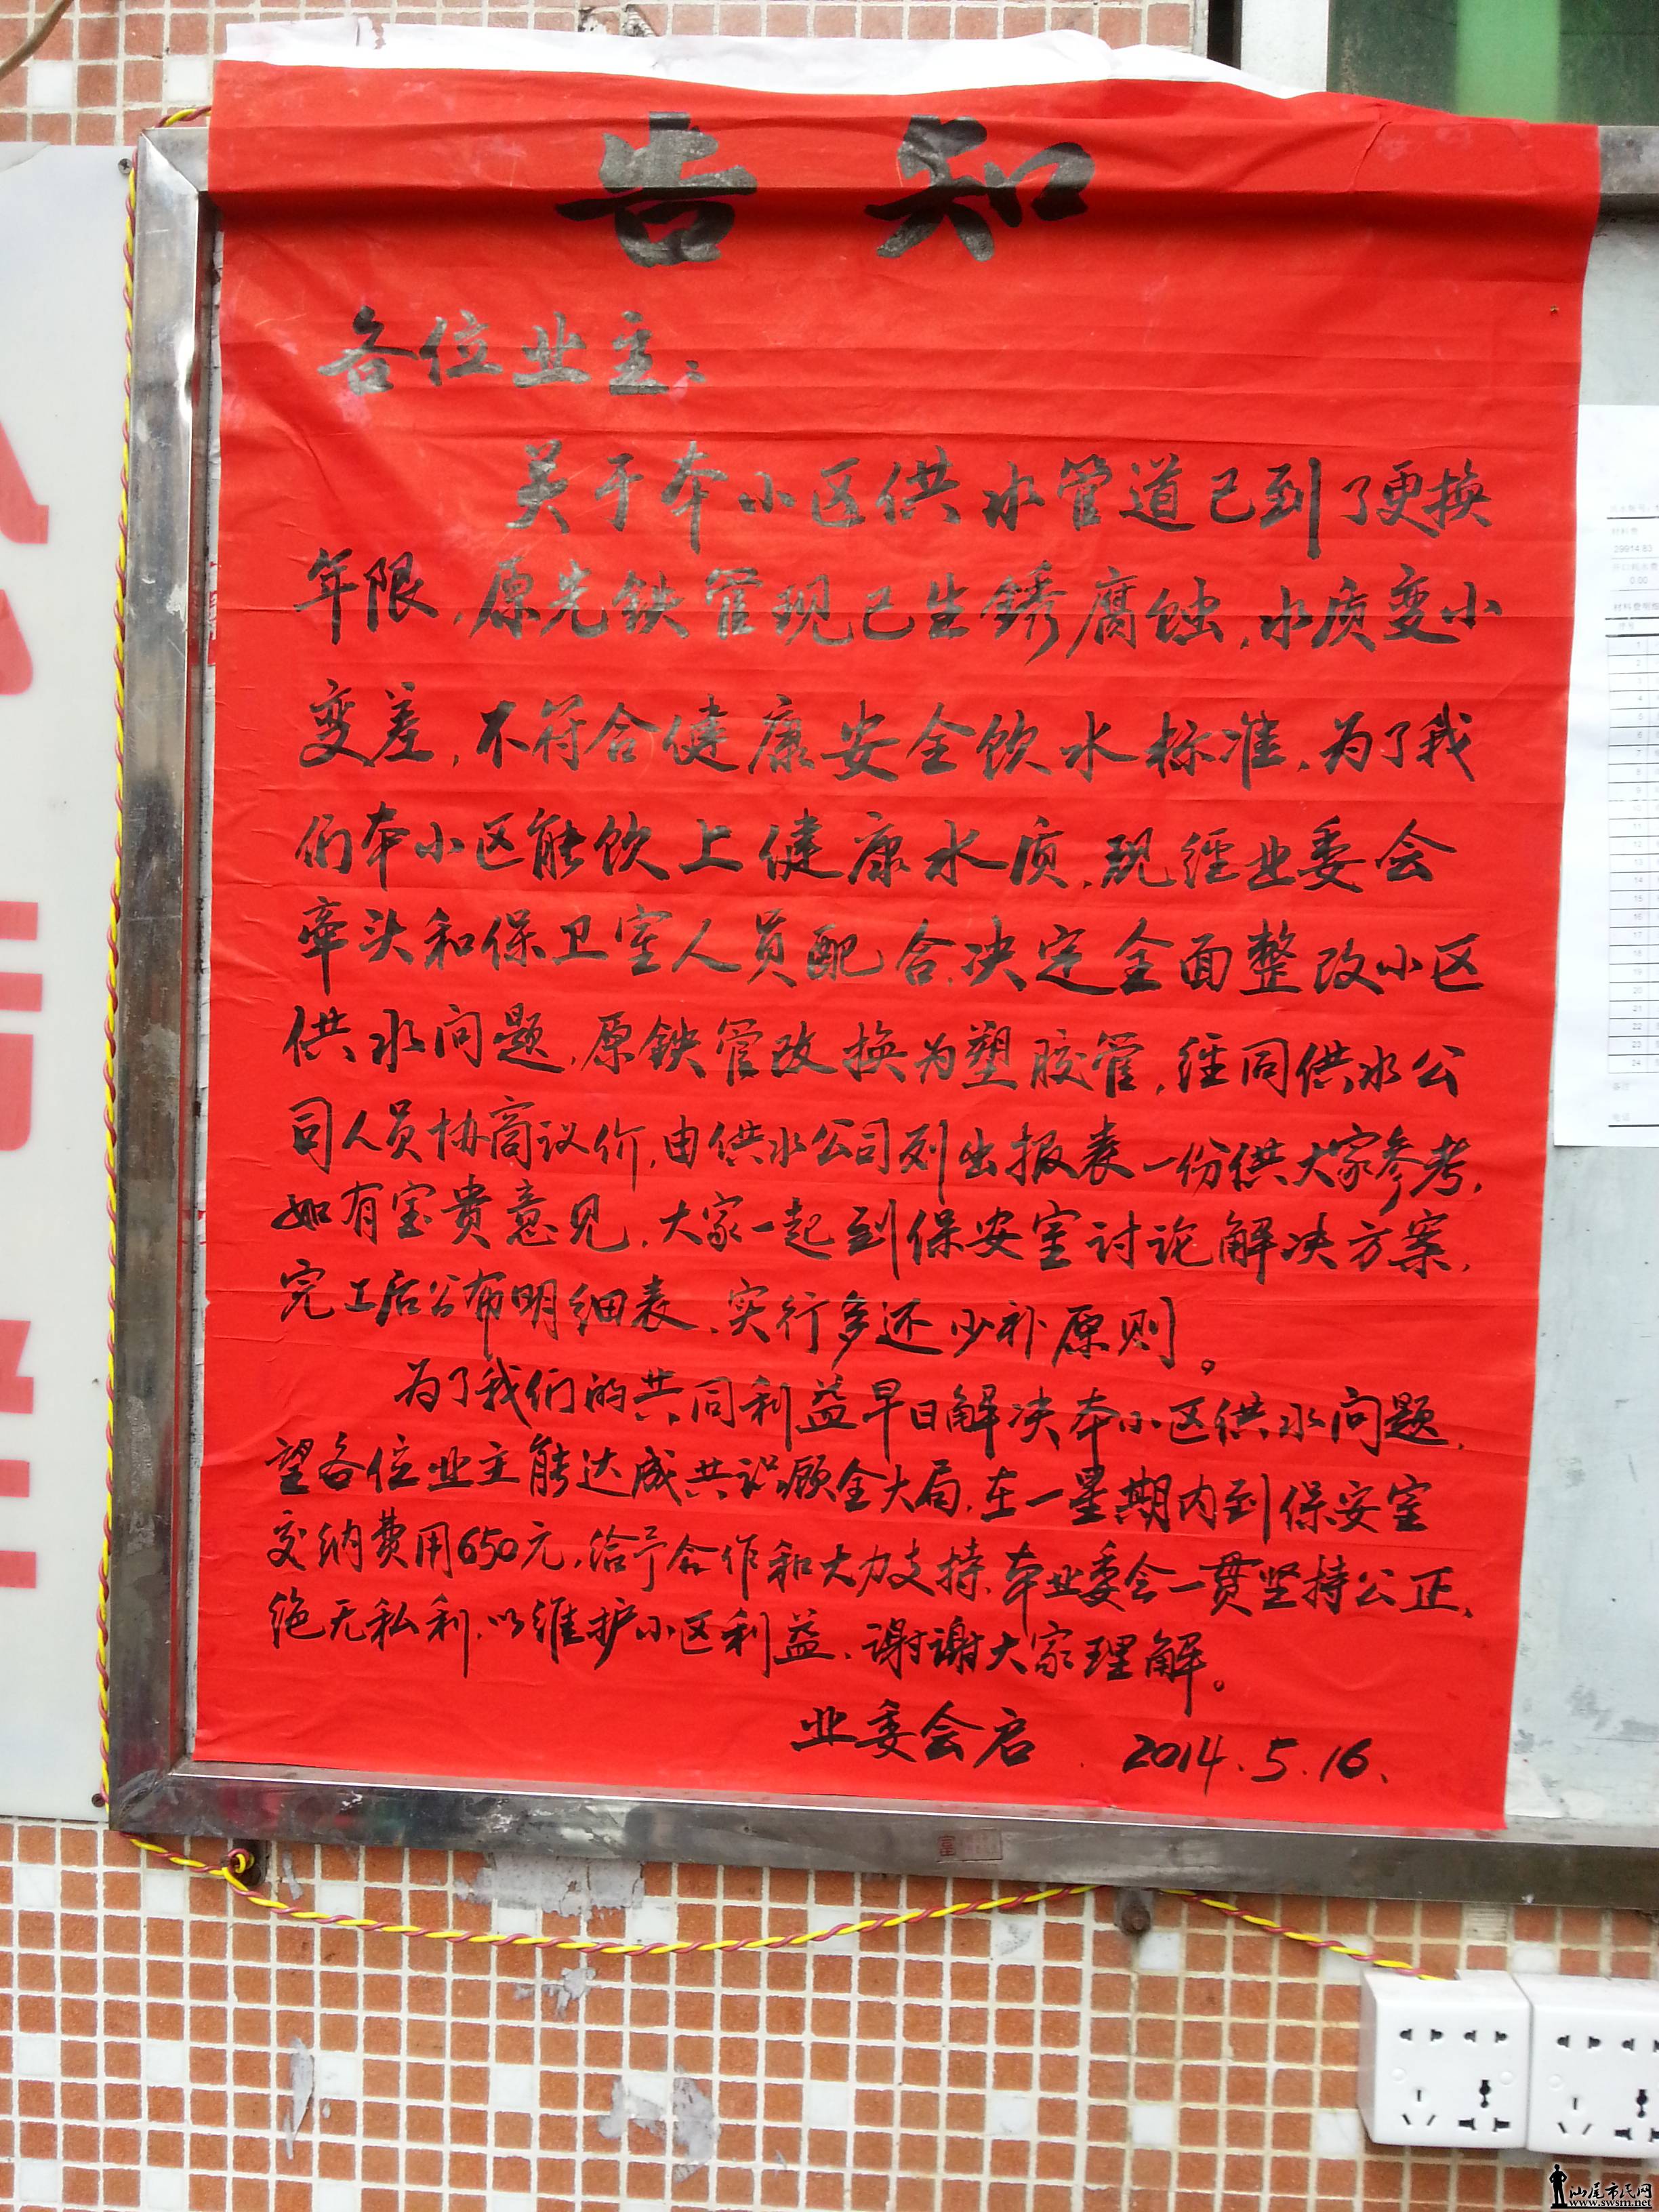 告知
各位业主：
关于本小区供水管道已到了更换
年限，原先铁管现已生锈腐蚀，水质变小
变差，不符合健康安全饮水标准，为了我
们本小区能饮上健康水质，现经业委会
牵头和保卫室人员配合，决定全面整改小区
供水问题，原铁管改换为塑胶管，经同供水公
司人员协商议价，由供水公司列出报表一份供大家参考，
如有宝贵意见，大家一起到保安室讨论解决方案，
完工后公布明细表，实行多还少补原则。
为了我们的共同利益早日解决本小区供水问题，
望各位业主能达成共识顾全大局，在一星期内到保安室
交纳费用650元，给予合作和大力支持，本业委会一贯坚持公正，
绝无私利，以维护小区利益，谢谢大家理解。
业委会启 2014.5.16.
29914.83
0.00
汕尾市民网
www.swsm.net